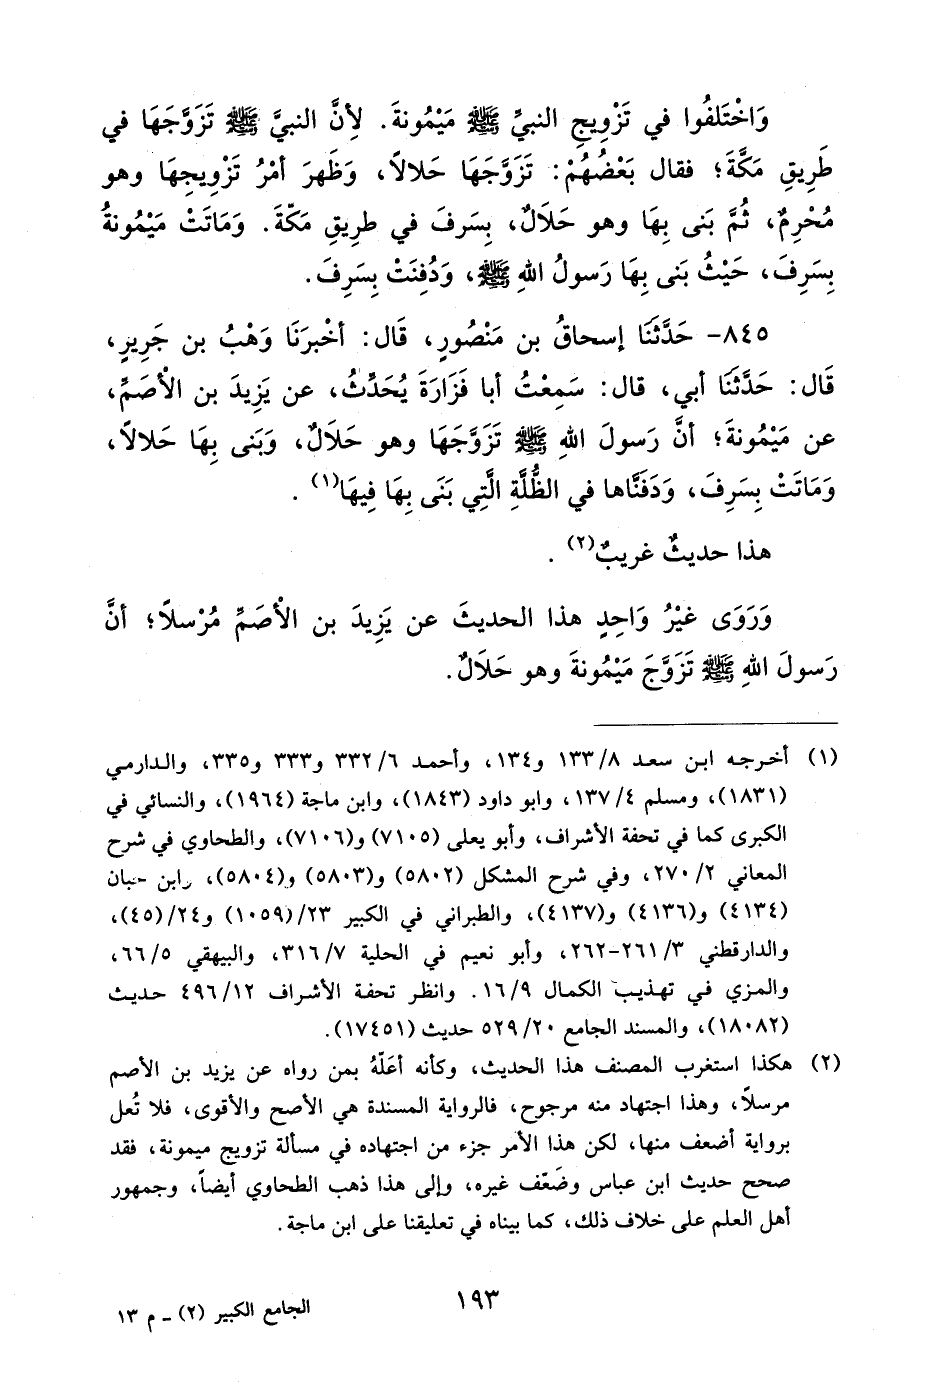 وَاخْتَلَفُوا في تَزْوِيجِ النبيِّ ﷺ مَيْمُونةَ. لِأنَّ النبيَّ ﷺ تَزَوَّجَهَا في
طَرِيقِ مَكَّةَ؛ فقال بَعْضُهُمْ: تَزَوَّجَهَا حَلالاً، وَظَهرَ أمْرُ تَزْوِيجِهَا وهو
مُحْرِمٌ، ثُمَّ بَنى بِهَا وهو حَلَالٌ، بِسَرفَ في طريقِ مَكّةَ. وَمَاتَتْ مَيْمُونةُ
بِسَرِفَ، حَيْثُ بَنى بِهَا رَسولُ اللهِ ﷺ، وَدُفِنَتْ بِسَرِفَ.
٨٤٥- حَدَّثَنَا إسحاقُ بن مَنْصُورٍ، قَال: أخْبرَنَا وَهْبُ بن جَرِيرٍ،
قَال: حَدَّثَنَا أبي، قال: سَمِعْتُ أبا فَزَارَةَ يُحَدِّثُ، عن يَزِيدَ بن الأصَمِّ،
عن مَيْمُونةَ؛ أنَّ رَسولَ اللهِ ﷺ تَزَوَّجَهَا وهو حَلَالٌ، وَبَنى بِهَا حَلالاً،
وَمَاتَتْ بِسَرِفَ، وَدَفَنَّاها في الظُّلَّةِ الَّتِي بَنَى بِهَا فِيهَا(١) .
هذا حديثٌ غريبٌ(٢) .
وَرَوَى غيْرُ وَاحِدٍ هذا الحديثَ عن يَزِيدَ بن الأصَمِّ مُرْسلاً؛ أنَّ
رَسولَ اللهِ ﷺ تَزَوَّجَ مَيْمُونةَ وهو حَلَالٌ.
(١) أخرجه ابن سعد ٨/ ١٣٣ و١٣٤، وأحمد ٦/ ٣٣٢ و٣٣٣ و٣٣٥، والدارمي
(١٨٣١)، ومسلم ٤/ ١٣٧، وابو داود (١٨٤٣)، وابن ماجة (١٩٦٤)، والنسائي في
الكبرى كما في تحفة الأشراف، وأبو يعلى (٧١٠٥) و(٧١٠٦)، والطحاوي في شرح
المعاني ٢/ ٢٧٠، وفي شرح المشكل (٥٨٠٢) و(٥٨٠٣) و(٥٨٠٤)، وابن حبان
(٤١٣٤) و(٤١٣٦) و(٤١٣٧)، والطبراني في الكبير ٢٣/(١٠٥٩) و٢٤/(٤٥)،
والدارقطني ٣/ ٢٦١-٢٦٢، وأبو نعيم في الحلية ٧/ ٣١٦، والبيهقي ٥/ ٦٦،
والمزي في تهذيب الكمال ٩/ ١٦. وانظر تحفة الأشراف ١٢/ ٤٩٦ حديث
(١٨٠٨٢)، والمسند الجامع ٢٠/ ٥٢٩ حديث (١٧٤٥١).
(٢) هكذا استغرب المصنف هذا الحديث، وكأنه أعَلّهُ بمن رواه عن يزيد بن الأصم
مرسلاً، وهذا اجتهاد منه مرجوح، فالرواية المسندة هي الأصح والأقوى، فلا تُعل
برواية أضعف منها، لكن هذا الأمر جزء من اجتهاده في مسألة تزويج ميمونة، فقد
صحح حديث ابن عباس وضَعّف غيره، وإلى هذا ذهب الطحاوي أيضاً، وجمهور
أهل العلم على خلاف ذلك، كما بيناه في تعليقنا على ابن ماجة.
١٩٣
الجامع الكبير (٢) - م ١٣